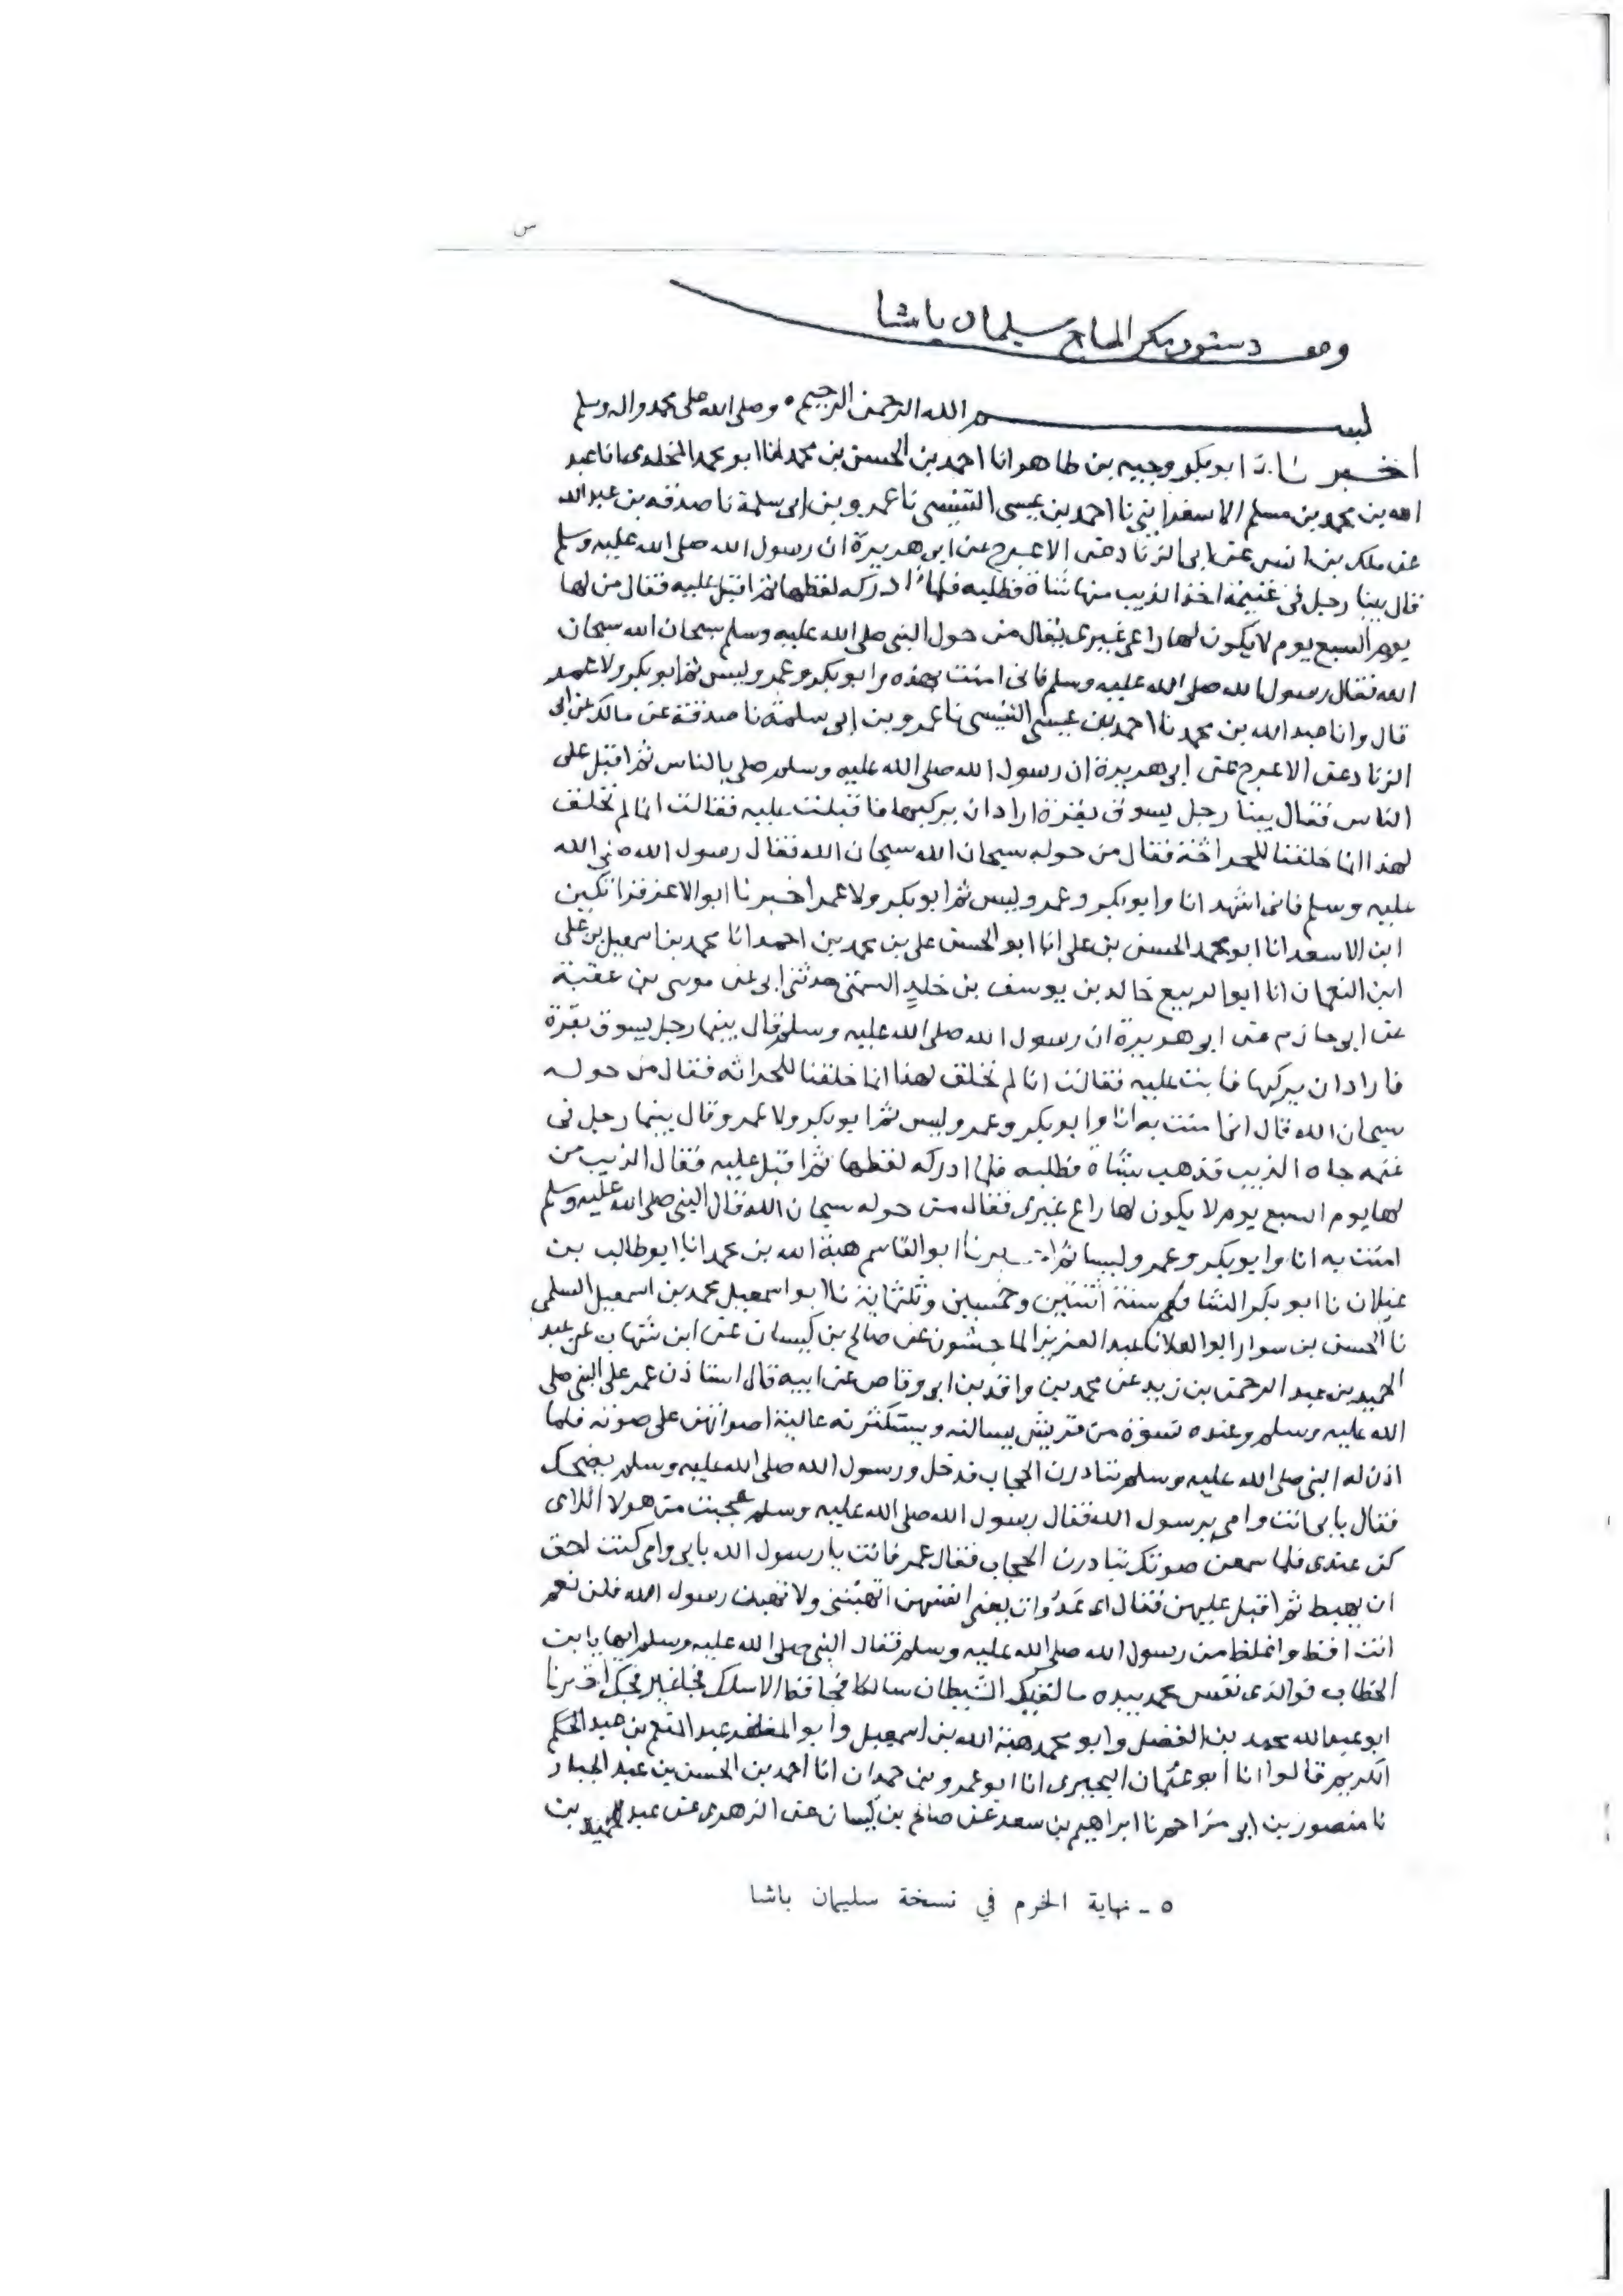 س
وقف دستور مكرم الحاج سليمان باشا
بسم الله الرحمن الرحيم • وصلى الله على محمد واله وسلم
اخبرنا ابو بكر وجيه بن طاهر انا احمد بن الحسن بن محمد انا ابو محمد المخلدى انا عبد
الله بن محمد بن مسلم الاسفراينى نا احمد بن عيسى التنيسى نا عمرو بن ابى سلمة نا صدقه بن عبد الله
عن ملك بن انس عن ابى الزناد عن الاعرج عن ابى هريرة ان رسول الله صلى الله عليه وسلم
قال بينا رجل فى غنيمة اخذ الذيب منها شاة فطلبه فلما ادركه لفظها ثم اقبل عليه فقال من لها
يوم السبع يوم لا يكون لها راعى غيرى فقال من حول النبى صلى الله عليه وسلم سبحان الله سبحان
الله فقال رسول الله صلى الله عليه وسلم فانى امنت بهذه وابو بكر وعمر وليس ثم ابو بكر ولا عمر
قال وانا عبد الله بن محمد نا احمد بن عيسى التنيسى نا عمرو بن ابى سلمة نا صدقة عن مالك عن ابى
الزناد عن الاعرج عن ابى هريرة ان رسول الله صلى الله عليه وسلم صلى بالناس ثم اقبل على
الناس فقال بينا رجل يسوق بقرة اراد ان يركبها فاقبلت عليه فقالت انا لم نخلق
لهذا انا خلقنا للحراثة فقال من حوله سبحان الله سبحان الله فقال رسول الله صلى الله
عليه وسلم فانى اشهد انا وابو بكر وعمر وليس ثم ابو بكر ولا عمر اخبرنا ابو الاعز قراتكين
ابن الاسعد انا ابو محمد الحسن بن على انا ابو الحسن على بن محمد بن احمد انا محمد بن اسمعيل بن على
ابن النعمان انا ابو الربيع خالد بن يوسف بن خلد السمتى حدثنى ابى عن موسى بن عقبة
عن ابى حازم عن ابى هريرة ان رسول الله صلى الله عليه وسلم قال بينما رجل يسوق بقرة
فاراد ان يركبها فابت عليه فقالت انا لم نخلق لهذا انما خلقنا للحراثه فقال من حوله
سبحان الله قال انما امنت به انا وابو بكر وعمر وليس ثم ابو بكر ولا عمر وقال بينما رجل فى
غنمه جاه الذيب فذهب بشاة فطلبه فلما ادركه لفظها ثم اقبل عليه فقال الذيب من
لها يوم السبع يوم لا يكون لها راع غيرى فقال من حوله سبحان الله قال النبى صلى الله عليه وسلم
امنت به انا وابو بكر وعمر وليسا ثم اخبرنا ابو القاسم هبة الله بن محمد انا ابو طالب بن
غيلان نا ابو بكر الشافعى سنة اثنتين وخمسين وثلثماية نا ابو اسمعيل محمد بن اسمعيل السلمى
نا الحسن بن سوار ابو العلا نا عبد العزيز الماجشون عن صالح بن كيسان عن ابن شهاب عن عبد
الحميد بن عبد الرحمن بن زيد عن محمد بن واقد بن ابى وقاص عن ابيه قال استاذن عمر على النبى صلى
الله عليه وسلم وعنده نسوة من قريش يسالنه ويستكثرنه عالية اصواتهن على صوته فلما
اذن له النبى صلى الله عليه وسلم تبادرن الحجاب فدخل ورسول الله صلى الله عليه وسلم يضحك
فقال بابى انت وامى يرسول الله فقال رسول الله صلى الله عليه وسلم عجبت من هولا اللاى
كن عندى فلما سمعن صوتك تبادرن الحجاب فقال عمر فانت يا رسول الله بابى وامى كنت احق
ان يهبط ثم اقبل عليهن فقال اى عدوات انفسهن اتهبننى ولا تهبن رسول الله قلن نعم
انت افظ واغلظ من رسول الله صلى الله عليه وسلم فقال النبى صلى الله عليه وسلم ايها يا بن
الخطاب فوالذى نفس محمد بيده ما لقيك الشيطان سالكا فجا قط الا سلك فجا غير فجك اخبرنا
ابو عبد الله محمد بن الفضل وابو محمد هبة الله بن اسمعيل وابو المظفر عبد المنعم بن عبد الحكم
الكريم قالوا انا ابو عثمان البحيرى انا ابو عمرو بن حمدان انا احمد بن الحسن بن عبد الجبار
نا منصور بن ابى مزاحم نا ابراهيم بن سعد عن صالح بن كيسان عن الزهرى عن عبد الحميد بن
٥ - نهاية الخرم في نسخة سليمان باشا